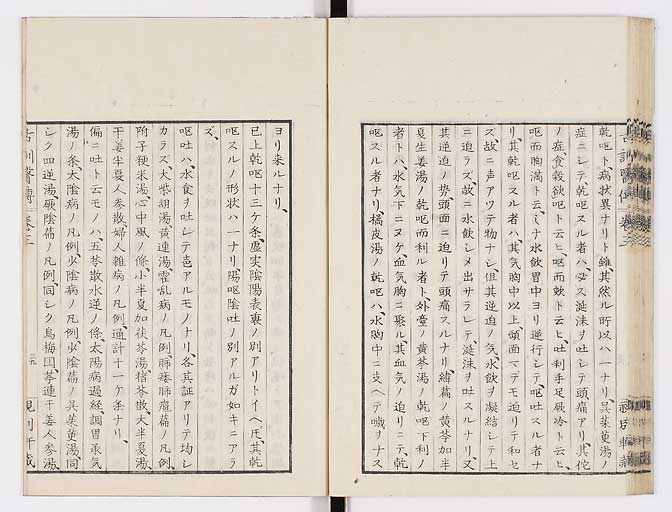 乾呕ト病状異ナリト雖其然ル所以ハ一ナリ、呉茱萸湯ノ
症ニシテ乾呕スル者ハ、必ス涎沫ヲ吐シテ頭痛アリ、其佗
ノ症、食穀欲呕ト云ヒ、呕而欬ト云ヒ、吐利手足厥冷ト云ヒ、
呕而胸満ト云ヒ、ミナ水飲胃中ヨリ逆行シテ、呕吐スル者ナ
リ、其乾呕スル者ハ、其気胸中以上、頭面ニテモ迫リテ和セ
ズ、故ニ声アツテ物ナシ、但其逆迫ノ気、水飲ヲ凝結シテ上
ニ迫ラズ、故ニ水飲シメ出サラレテ、涎沫ヲ吐スルナリ、又
其逆迫ノ势、頭面ニ迫リテ頭痛スルナリ、 篇ノ黄芩加半
夏生姜湯ノ乾呕而利ル者ト、外臺ノ黄芩湯ノ乾呕下利ノ
者トハ、水気下ニヌケ、血気胸ニ聚ル、其血気ノ迫リニテ、乾
呕スル者ナリ、橘皮湯ノ乾呕ハ、水胸中ニ支ヘテ噦ヲナス
ヨリ来ルナリ、
已上乾呕十三ケ条、虚実陰陽表裏ノ別アリトイヘ𪜈、其乾
呕スルノ形状ハ一ナリ、陽呕陰吐ノ別アルガ如キニアラ
ズ、
呕吐ハ、水食ヲ吐シテ声アルモノナリ、各其証アリテ均シ
カラス、大柴胡湯、黄連湯、霍乱病ノ凡例、肺痿肺癰篇ノ凡例、
附子粳米湯、心中風ノ條、小半夏加茯苓湯、猪苓散、大半夏湯、
干姜半夏人参散、婦人雜病ノ凡例、通計十一ケ条ナリ、
偏ニ吐ト云モノハ、五苓散水逆ノ條、太陽病過経、調胃承気
湯ノ条、太陰病ノ凡例、少陰病ノ凡例、少陰篇ノ呉茱萸湯、同
シク四逆湯、厥陰篇ノ凡例、同シク烏梅圓、芩連干姜人参湯、